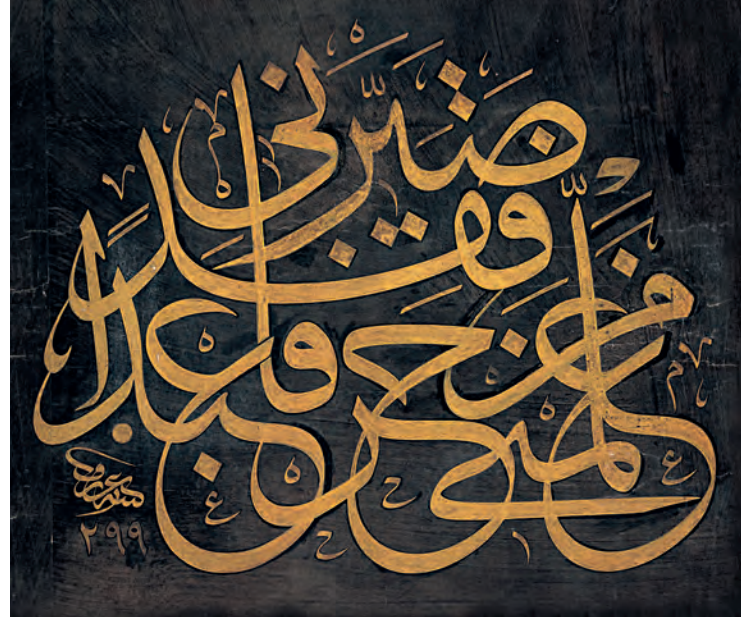 من علمنى حرفا فقد صيرنى عبدا
٢٩٩